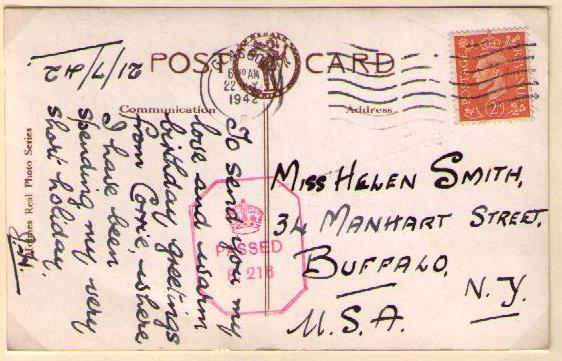 POST CARD
Communication
Address
21/7/42
To send you my
love and warm
birthday greetings
from Corrie, where
I have been
spending my very
short holiday.
Real Photo Series
6 30 AM
22
1942
PASSED
218
POSTAGE
2D
MISS HELEN SMITH,
34 MANHART STREET,
BUFFALO,
N.Y.
U.S.A.